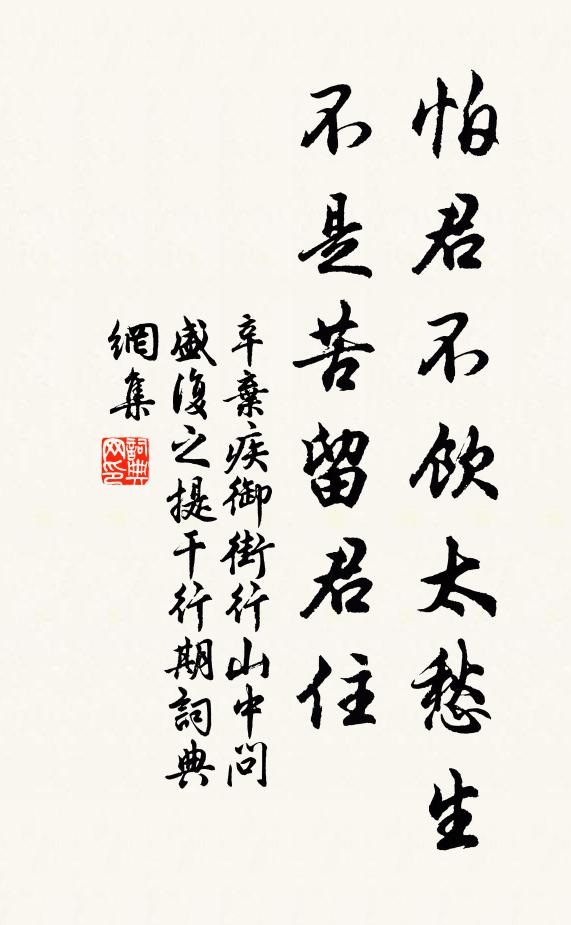 怕君不飲太愁生
不是苦留君住
辛棄疾御街行山中問
盛復之提干行期詞典
網集
詞典
网印